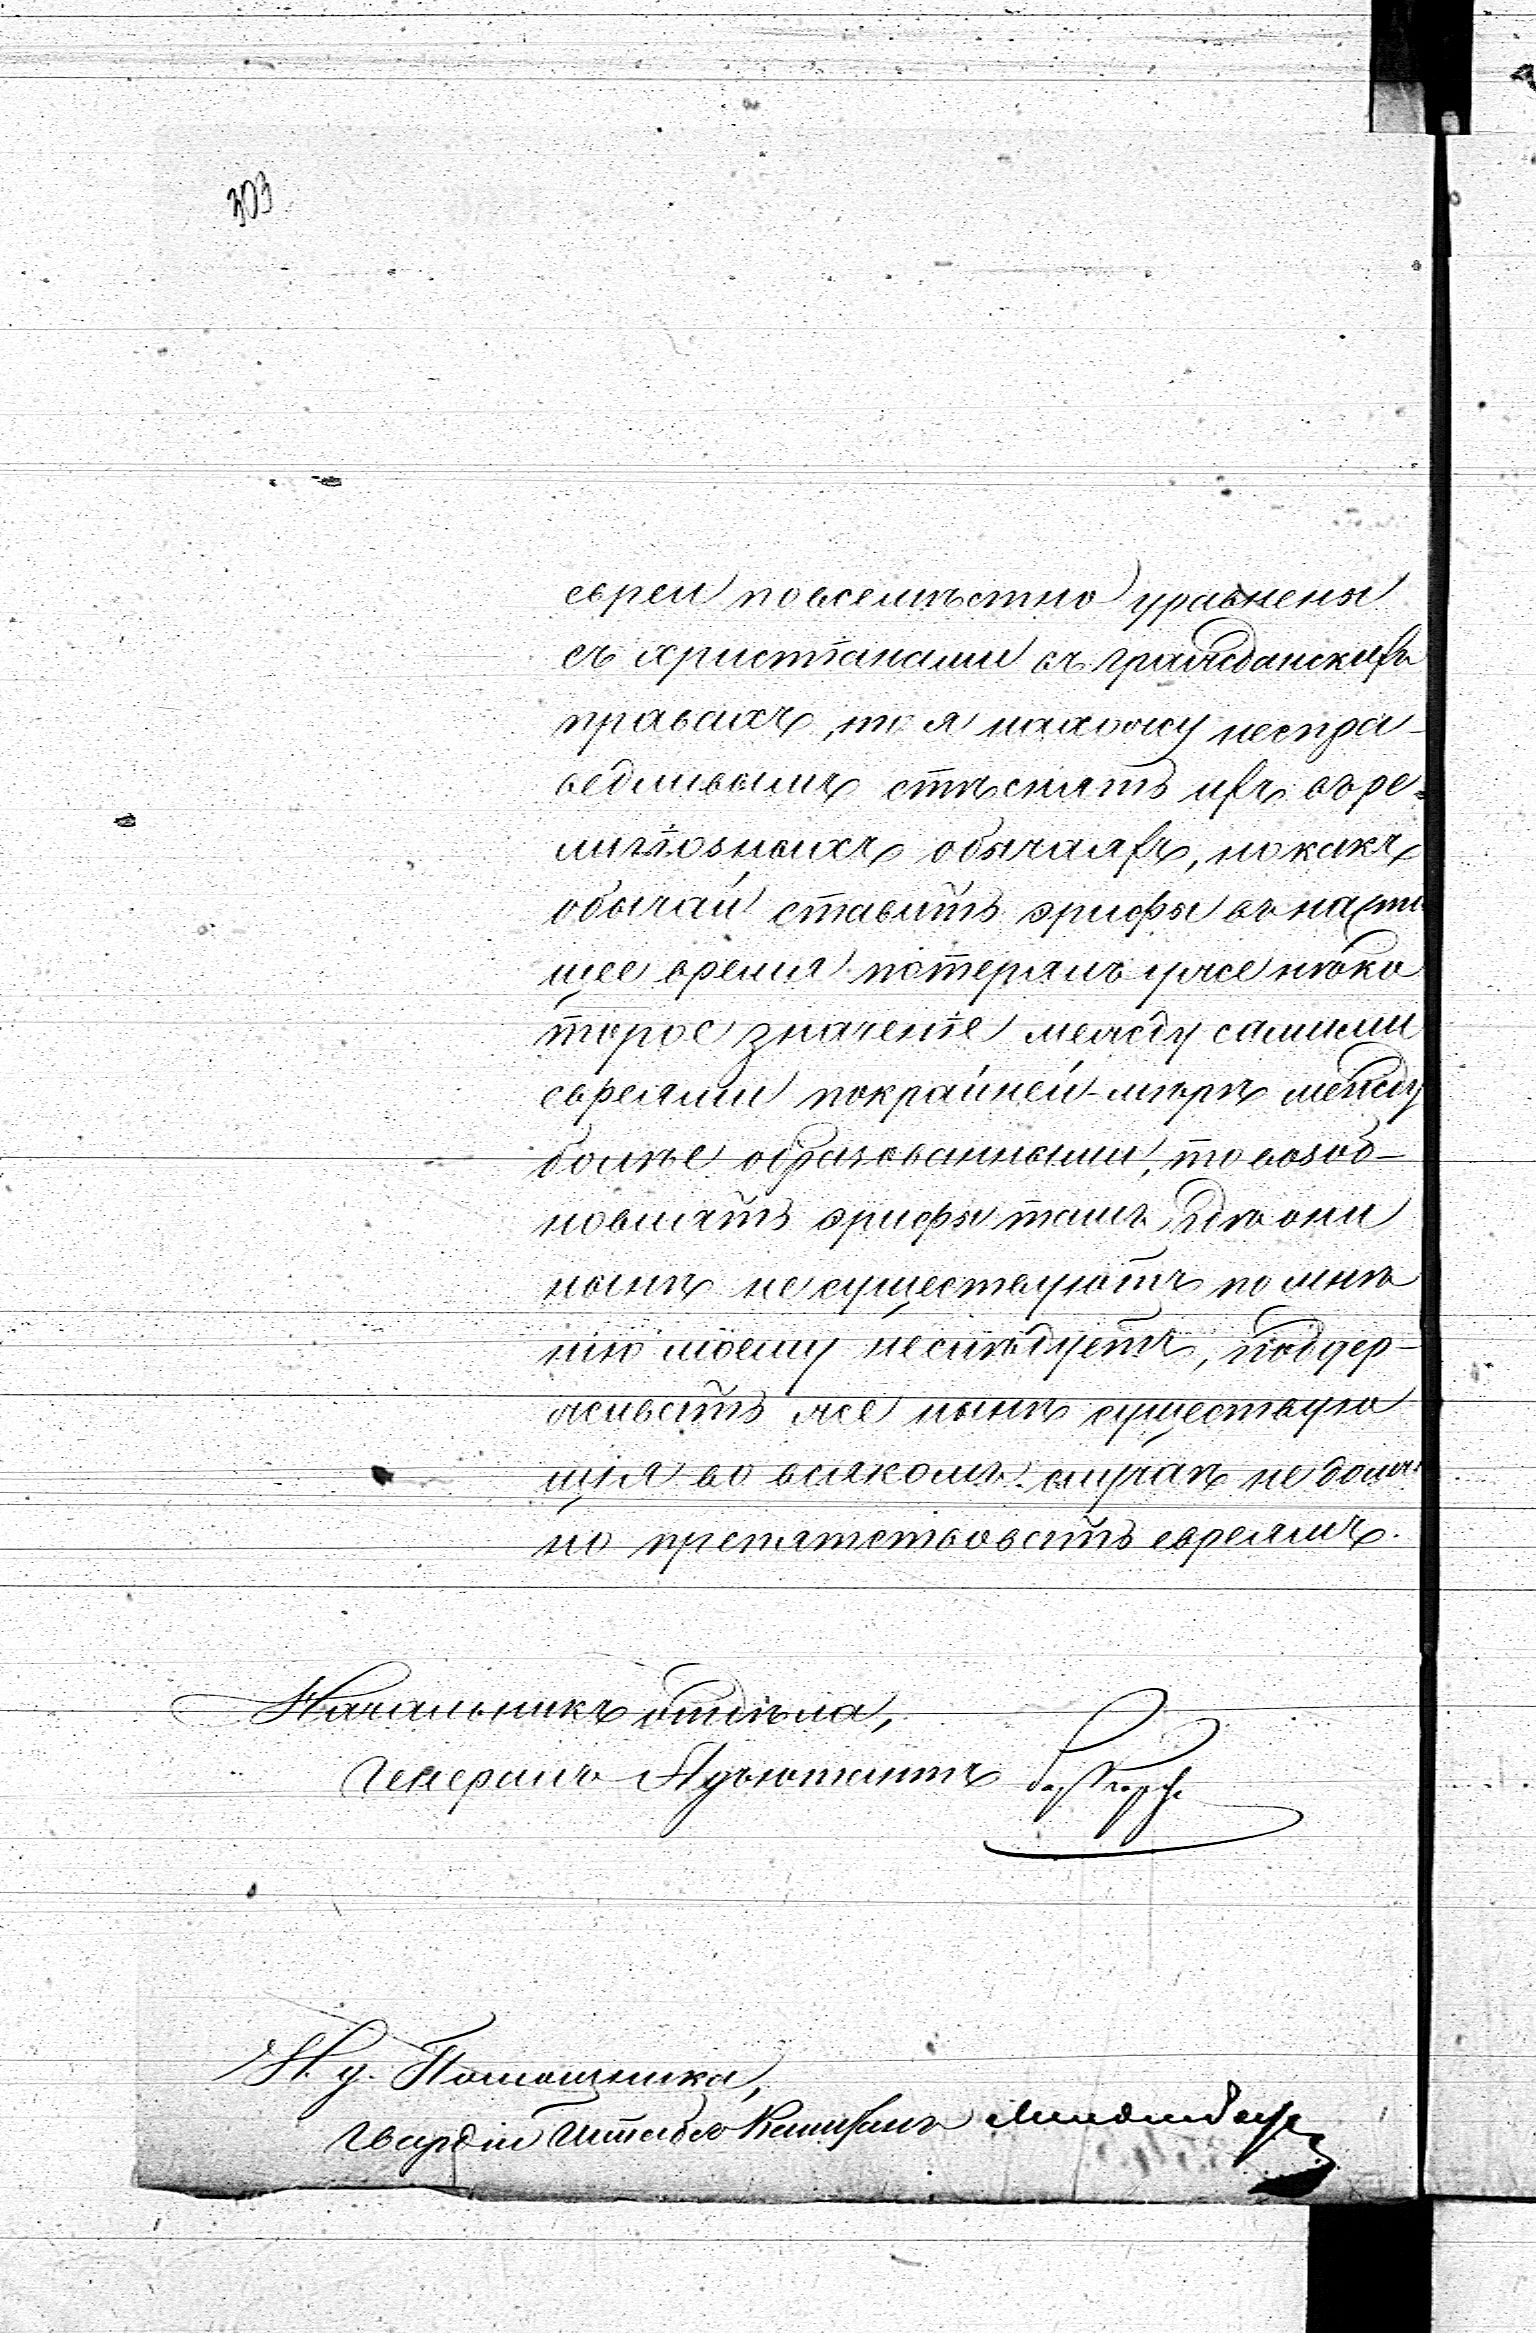 303
евреи повсемѣстно уравнены
съ христіанами въ гражданскихъ
правахъ, то я нахожу неспра-
ведливымъ стѣснять ихъ въ ре-
лигіозныхъ обычаяхъ, но какъ
обычай ставить эрифы въ настоя
щее время потерялъ уже нѣко
торое значеніе между самими
евреями покрайней-мѣрѣ между
болѣе образованными, то возоб-
новлять эрифы тамъ, гдѣ они
нынѣ не существуютъ по мнѣ
нію моему неслѣдуетъ, поддер-
живать же нынѣ существую
щія во всякомъ случаѣ не долж
но препятствовать евреямъ.
Начальникъ отдѣла,
Генералъ Адъютантъ
И. у. Помощника,
Гвардіи Штабсъ Капитанъ